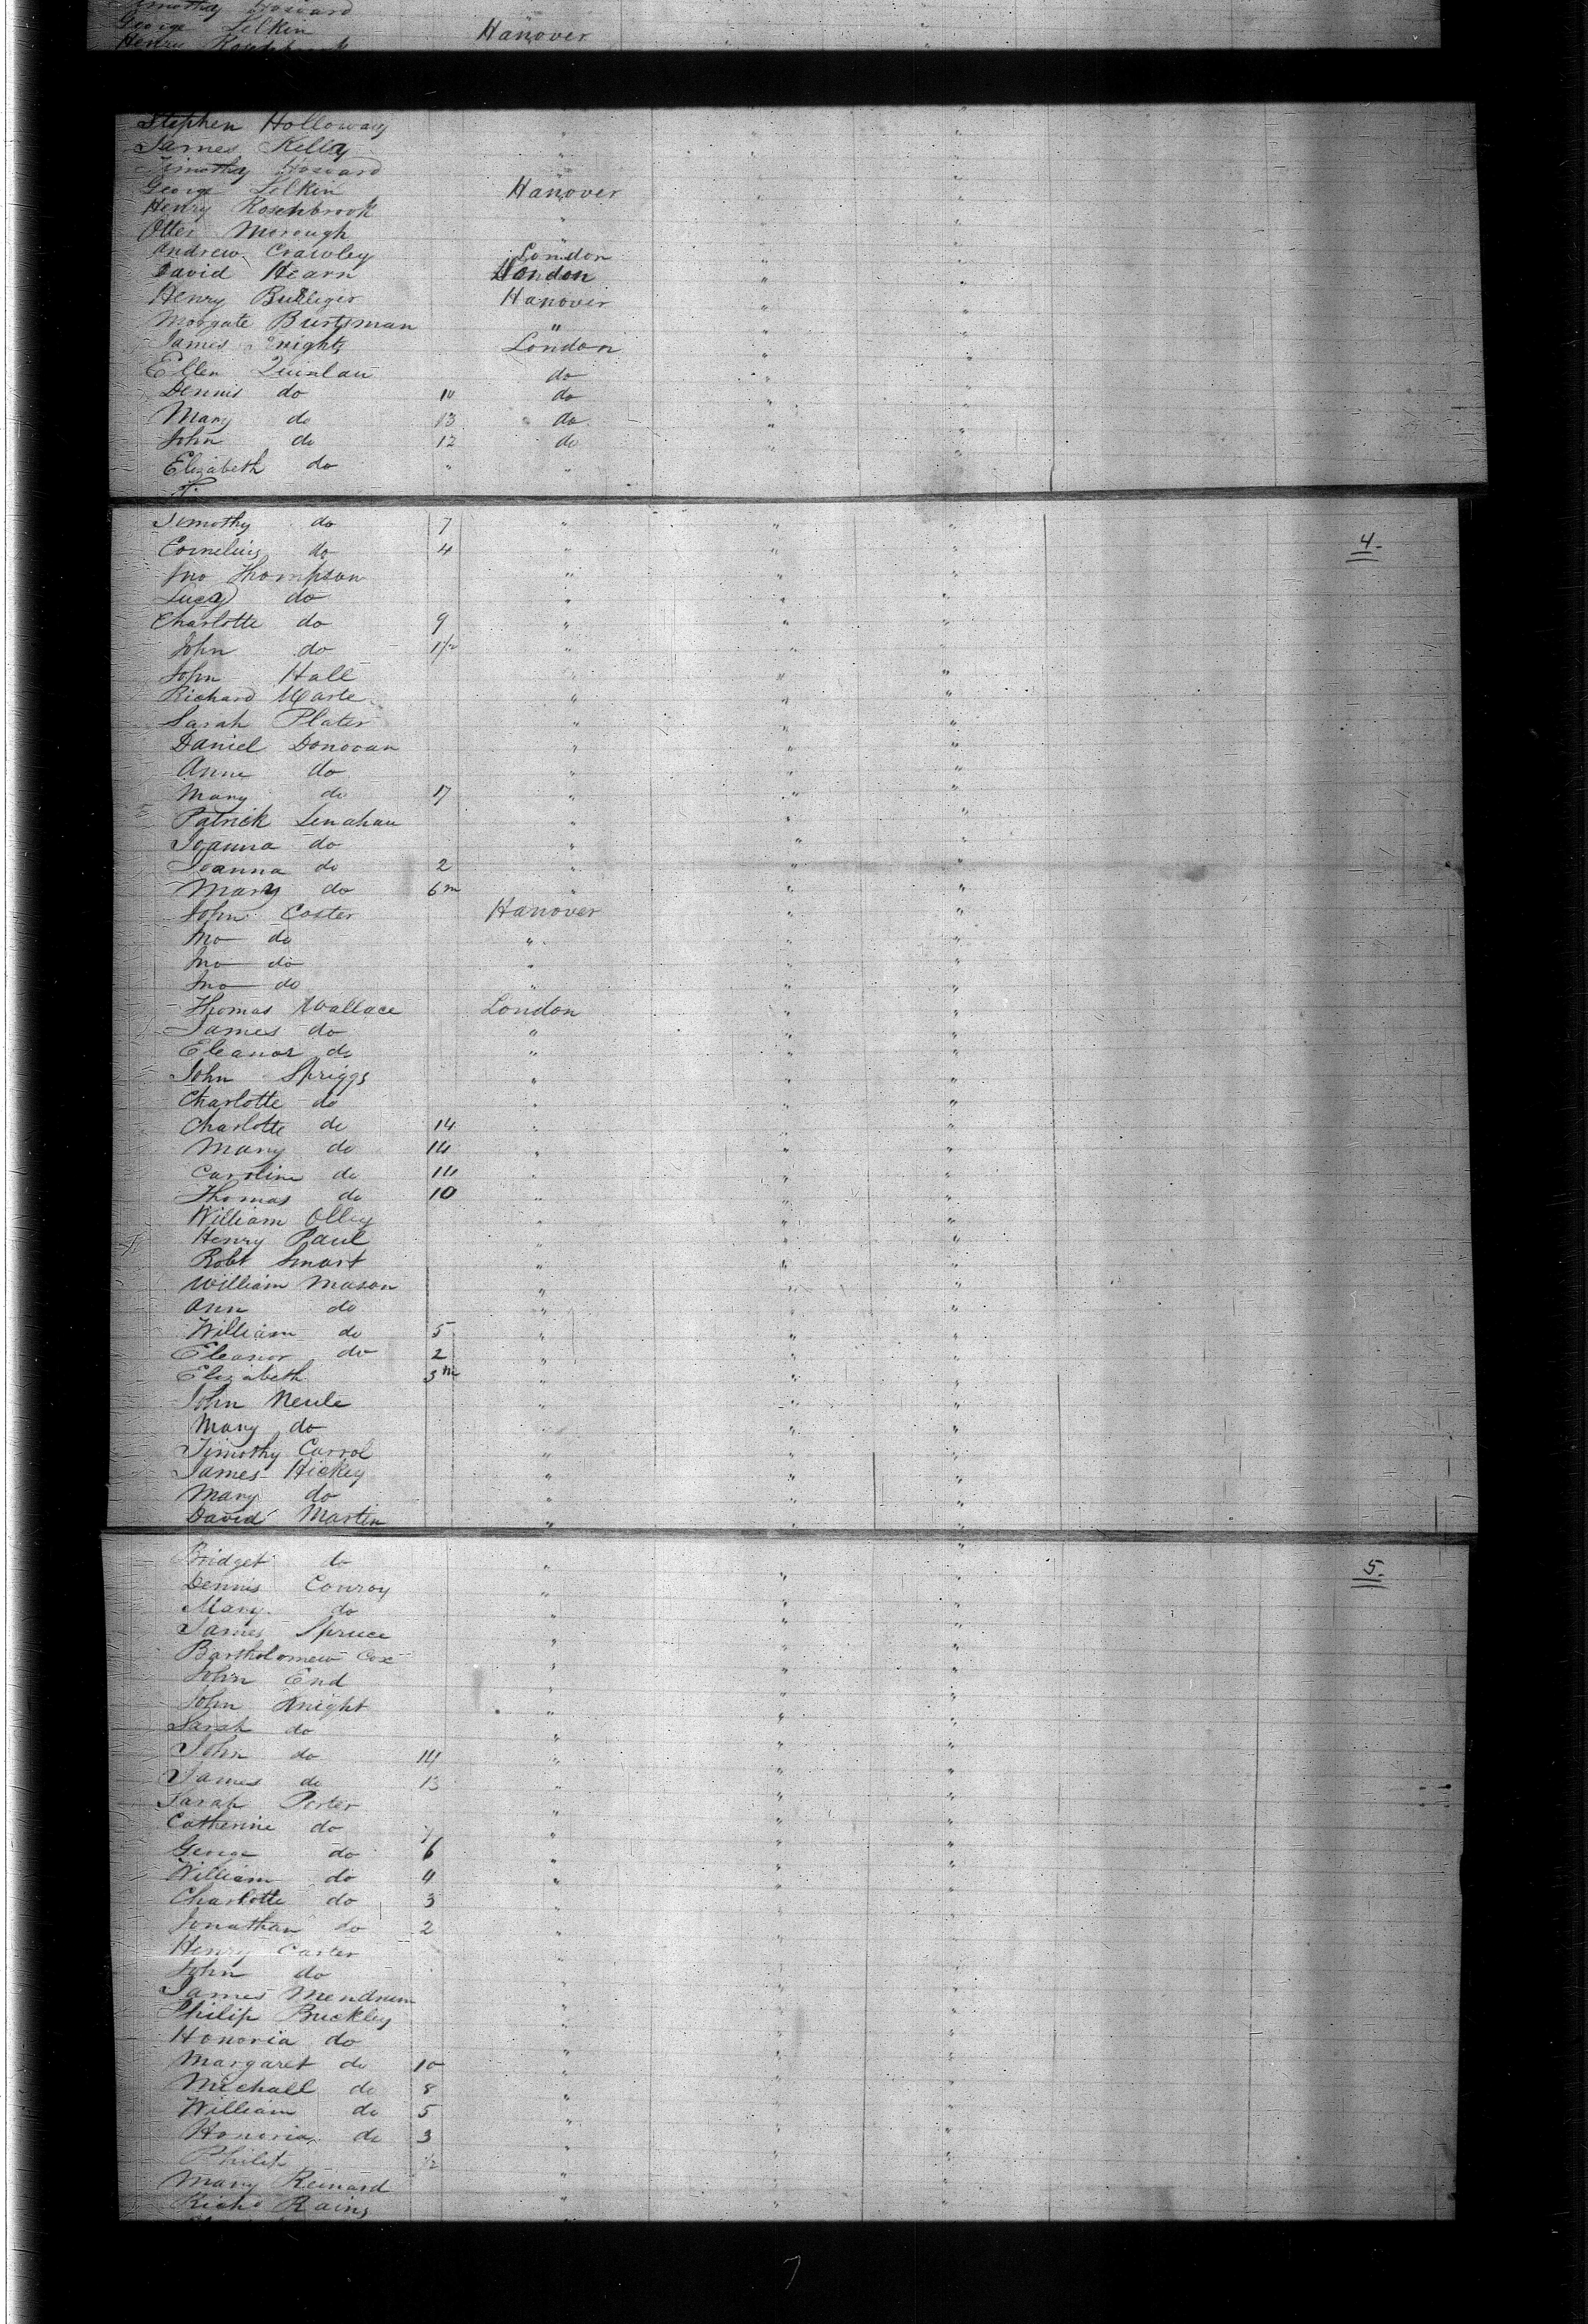 Timothy Howard
George Lelkin Hanover
Henry
Stephen Holloway " " "
James Kelly " " "
Timothy Howard " " "
George Lelkin Hanover " "
Henry Roschbrook " " "
Otter Morough " " "
Andrew Crawley London " "
David Hearn London " "
Henry Hanover " "
Morgate Burtsman " " "
James Knight London " "
Ellen Quinlan do " "
Dennis do do " "
Mary do 13 do " "
John do 12 do " "
Elizabeth do " " " "
Timothy do 7 " " "
Cornelius do 4 " " " 4.
Jno Thompson " " "
Lucy do " " "
Charlotte do 9 " " "
John do 1½ " " "
John Hall " " "
Richard " " "
Sarah Plater " " "
Daniel Donovan " " "
Anne do " " "
Mary do 17 " " "
Patrick Lenahan " " "
Joanna do " " "
Joanna do 2 " " "
Mary do 6m " " "
John Coster Hanover " "
Jno do " " "
Jno do " " "
Jno do " " "
Thomas Wallace London " "
James do " " "
Eleanor do " " "
John Spriggs " " "
Charlotte do " " "
Charlotte do 14 " " "
Mary do 14 " " "
Caroline do 14 " " "
Thomas do 10 " " "
William Olley " " "
Henry Paul " " "
Robt Smart " " "
William Mason " " "
Ann do " " "
William do 5 " " "
Eleanor do 2 " " "
Elizabeth 3m " " "
John Neule " " "
Mary do " " "
Timothy Carrol " " "
James Hickey " " "
Mary do " " "
David Martin " " "
Bridget do " " " 5.
Dennis Conroy " " "
Mary do " " "
James Spruce " " "
Bartholomew Cox " " "
John End " " "
John Knight " " "
Sarah do " " "
John do 14 " " "
James do 13 " " "
Sarah Porter " " "
Catherine do " " "
George do 6 " " "
William do 4 " " "
Charlotte do 3 " " "
Jonathan do 2 " " "
Henry Carter " " "
John do " " "
James Mendrum " " "
Philip Buckley " " "
Honoria do " " "
Margaret do 10 " " "
Michall do 8 " " "
William do 5 " " "
Honoria do 3 " " "
Philip ½ " " "
Mary Reinard " " "
Richd Rains " " "
7